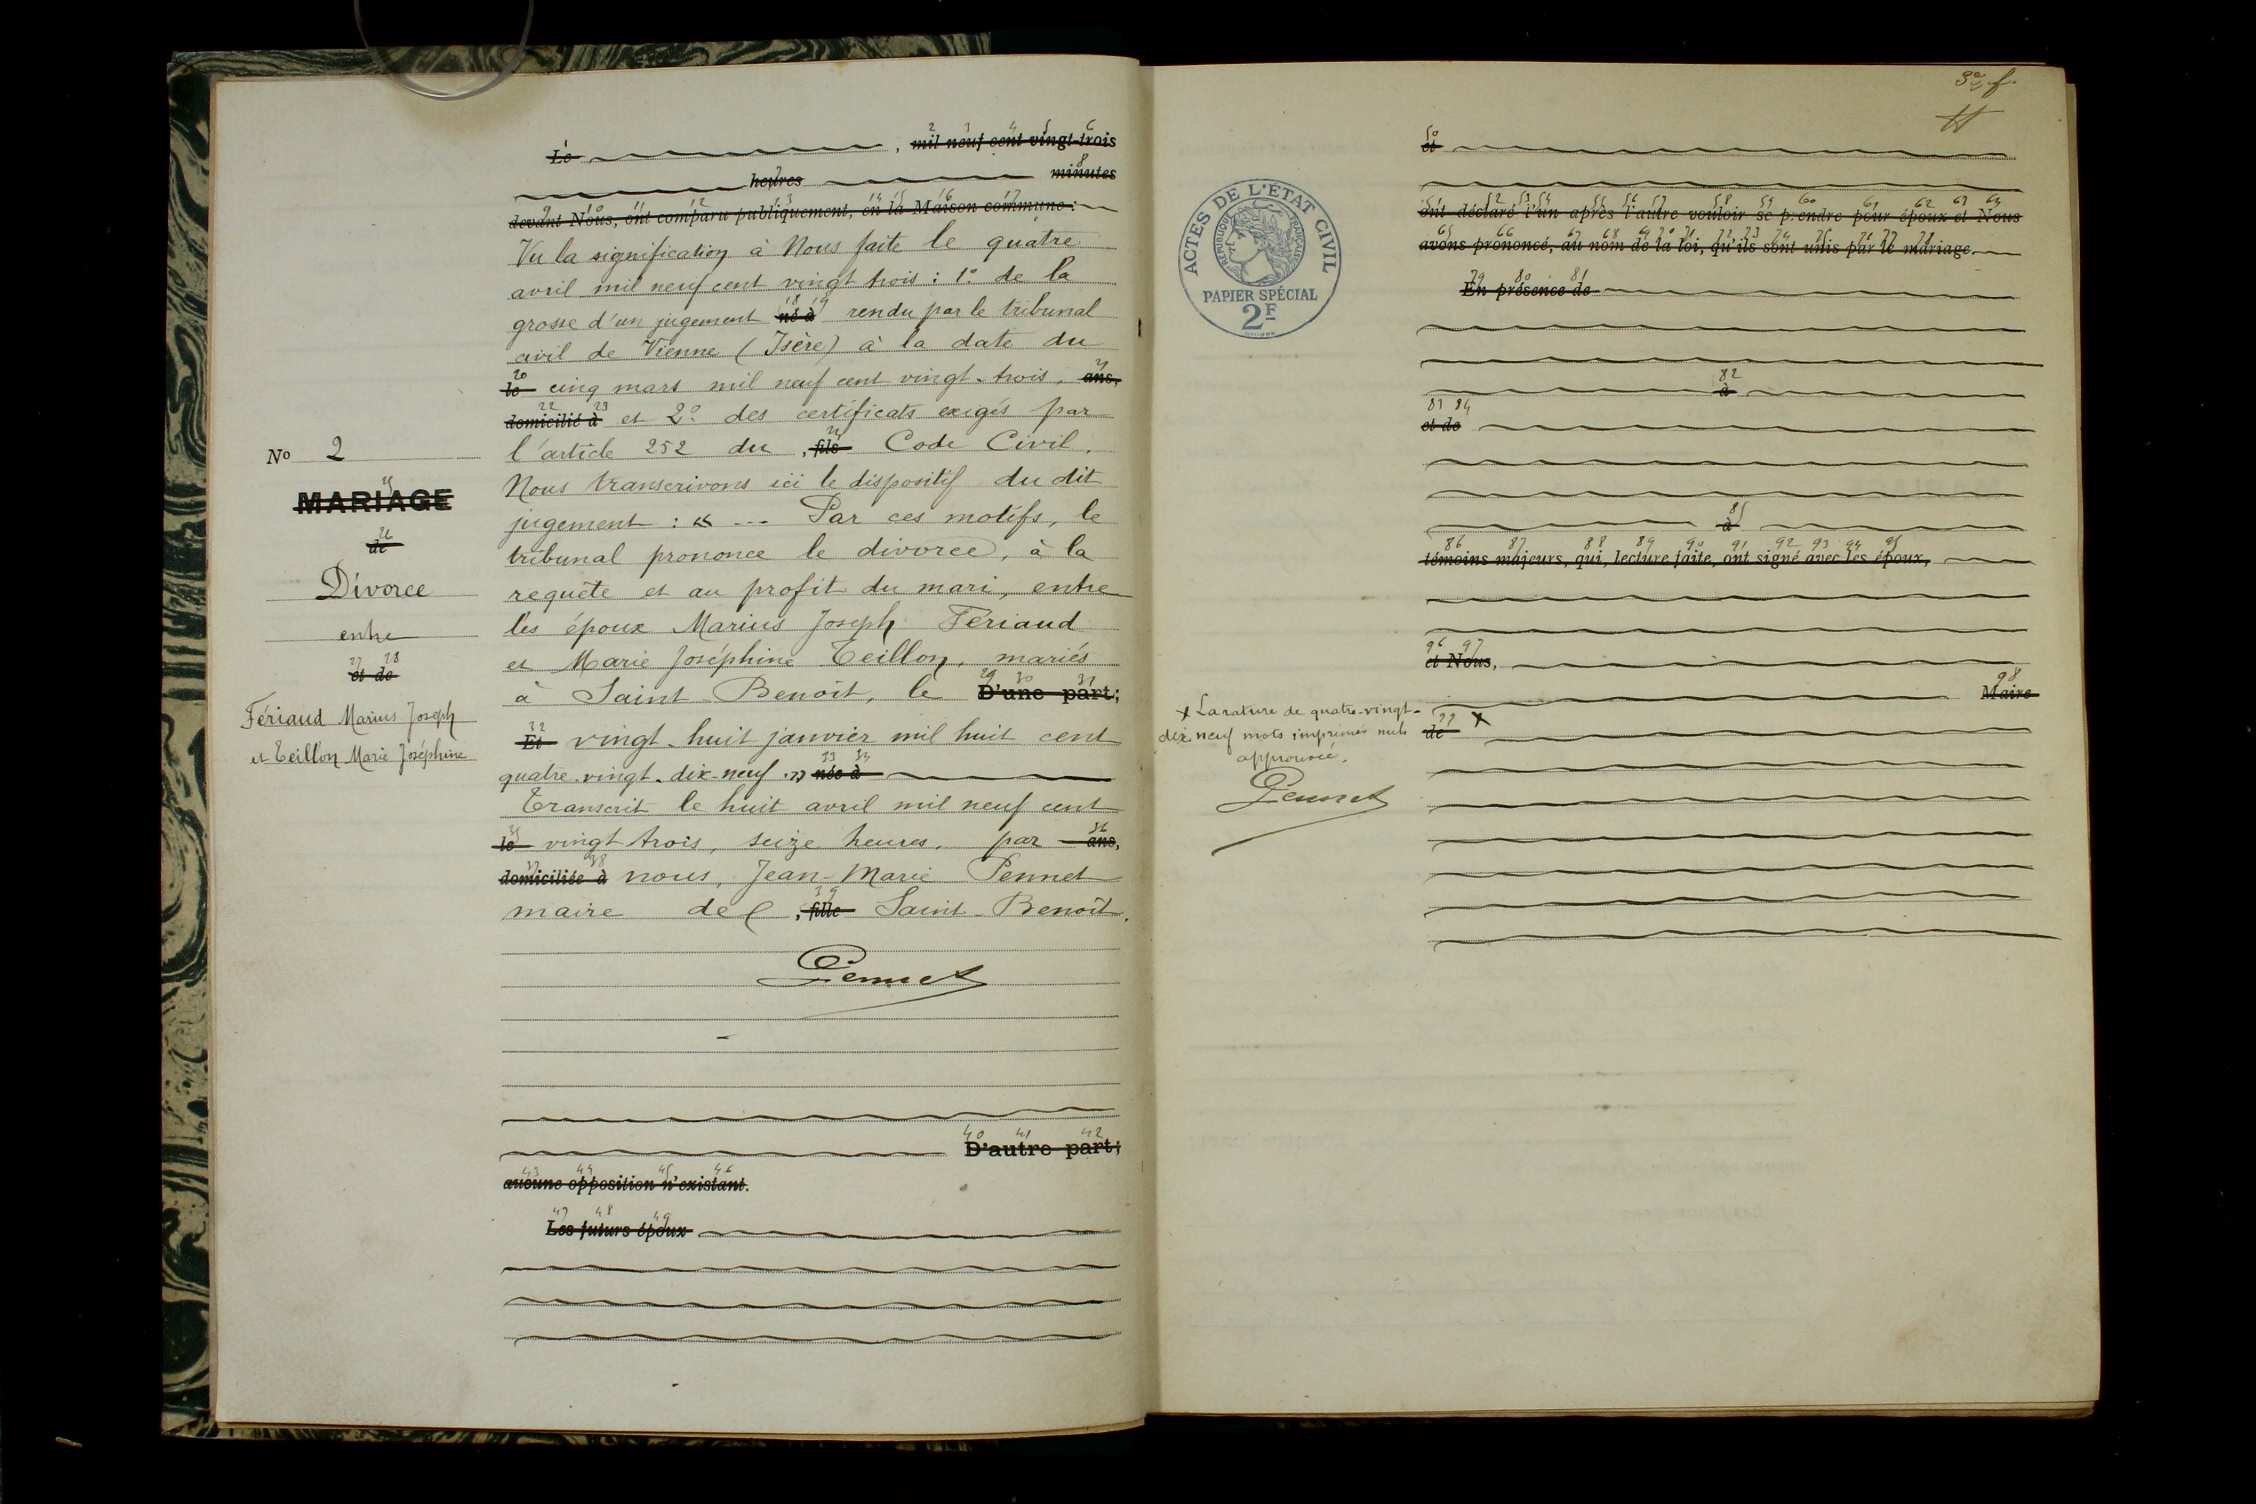 Le , mil neuf cent vingt-trois
heures minutes
devant Nous, ont comparu publiquement, en la Maison commune :
Vu la signification à Nous faite le quatre
avril mil neuf cent vingt trois : 1º de la
grosse d'un jugement né à rendu par le tribunal
civil de Vienne (Isère) à la date du
le cinq mars mil neuf cent vingt-trois, ans,
domicilié à et 2º des certificats exigés par
l'article 252 du , fils Code Civil.
Nous transcrivons ici le dispositif du dit
jugement : « --- Par ces motifs, le
tribunal prononce le divorce, à la
requête et au profit du mari, entre
les époux Marius Joseph Fériaud
et Marie Joséphine Teillon, mariés
à Saint-Benoît, le D'une part;
Et vingt-huit janvier mil huit cent
quatre-vingt-dix-neuf. » née à
Transcrit le huit avril mil neuf cent
le vingt trois, seize heures, par ans,
domiciliée à nous, Jean-Marie Pennet
maire de , fille Saint-Benoît.
Pennet
D'autre part;
aucune opposition n'existant.
Les futurs époux
Nº 2
MARIAGE
de
Divorce
entre
et de
Fériaud Marius Joseph
et Teillon Marie Joséphine
3e f.
et
ont déclaré l'un après l'autre vouloir se prendre pour époux et Nous
avons prononcé, au nom de la loi, qu'ils sont unis par le mariage.
En présence de
à
et de
à
témoins majeurs, qui, lecture faite, ont signé avec les époux,
et Nous,
Maire
de x
ACTES DE L'ÉTAT CIVIL
RÉPUBLIQUE FRANÇAISE
PAPIER SPÉCIAL
2F
x La rature de quatre-vingt-
dix neuf mots imprimés nuls
approuvée.
Pennet